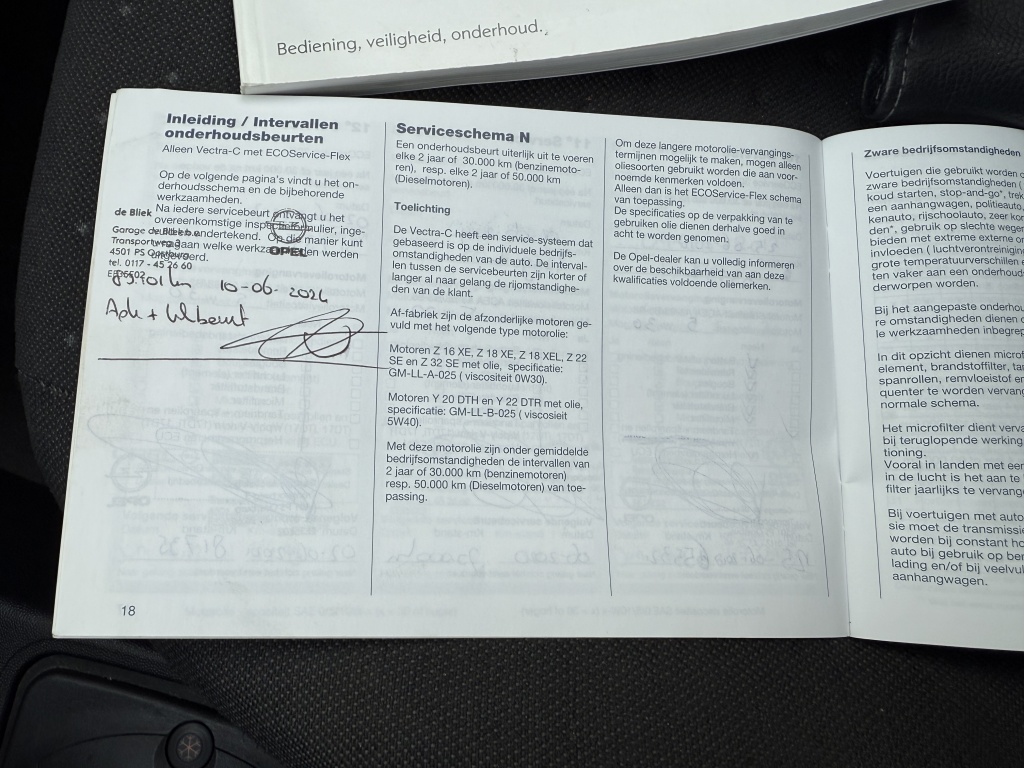 Bediening, veiligheid, onderhoud.
Inleiding / Intervallen
onderhoudsbeurten
Alleen Vectra-C met ECOService-Flex
Op de volgende pagina's vindt u het on-
derhoudsschema en de bijbehorende
werkzaamheden.
Na iedere servicebeurt ontvangt u het
overeenkomstige inspectieformulier, inge-
vuld en ondertekend. Op die manier kunt
u nagaan welke werkzaamheden werden
uitgevoerd.
de Bliek
Garage de Bliek b.v.
Transportweg 3
4501 PS Oostburg
tel. 0117 - 45 26 60
OPEL
10-06-2024
18
Serviceschema N
Een onderhoudsbeurt uiterlijk uit te voeren
elke 2 jaar of 30.000 km (benzinemoto-
ren), resp. elke 2 jaar of 50.000 km
(Dieselmotoren).
Toelichting
De Vectra-C heeft een service-systeem dat
gebaseerd is op de individuele bedrijfs-
omstandigheden van de auto. De interval-
len tussen de servicebeurten zijn korter of
langer al naar gelang de rijomstandighe-
den van de klant.
Af-fabriek zijn de afzonderlijke motoren ge-
vuld met het volgende type motorolie:
Motoren Z 16 XE, Z 18 XE, Z 18 XEL, Z 22
SE en Z 32 SE met olie, specificatie:
GM-LL-A-025 ( viscositeit 0W30).
Motoren Y 20 DTH en Y 22 DTR met olie,
specificatie: GM-LL-B-025 ( viscosieit
5W40).
Met deze motorolie zijn onder gemiddelde
bedrijfsomstandigheden de intervallen van
2 jaar of 30.000 km (benzinemotoren)
resp. 50.000 km (Dieselmotoren) van toe-
passing.
Om deze langere motorolie-vervangings-
termijnen mogelijk te maken, mogen alleen
oliesoorten gebruikt worden die aan voor-
noemde kenmerken voldoen.
Alleen dan is het ECOService-Flex schema
van toepassing.
De specificaties op de verpakking van te
gebruiken olie dienen derhalve goed in
acht te worden genomen.
De Opel-dealer kan u volledig informeren
over de beschikbaarheid van aan deze
kwalificaties voldoende oliemerken.
Zware bedrijfsomstandigheden
Voertuigen die gebruikt worden
zware bedrijfsomstandigheden (
koud starten, stop-and-go*, trek
een aanhangwagen, politieauto,
kenauto, rijschoolauto, zeer kor
den*, gebruik op slechte wegen
bieden met extreme externe om
invloeden ( luchtverontreiniging
grote temperatuurverschillen
ten vaker aan een onderhoud
derworpen worden.
Bij het aangepaste onderhou
re omstandigheden dienen
le werkzaamheden inbegrep
In dit opzicht dienen microf
element, brandstoffilter, tan
spanrollen, remvloeistof en
quenter te worden vervang
normale schema.
Het microfilter dient verva
bij teruglopende werking
tioning.
Vooral in landen met een
in de lucht is het aan te
filter jaarlijks te vervange
Bij voertuigen met auto
sie moet de transmissie
worden bij constant ho
auto bij gebruik op ber
lading en/of bij veelvul
aanhangwagen.